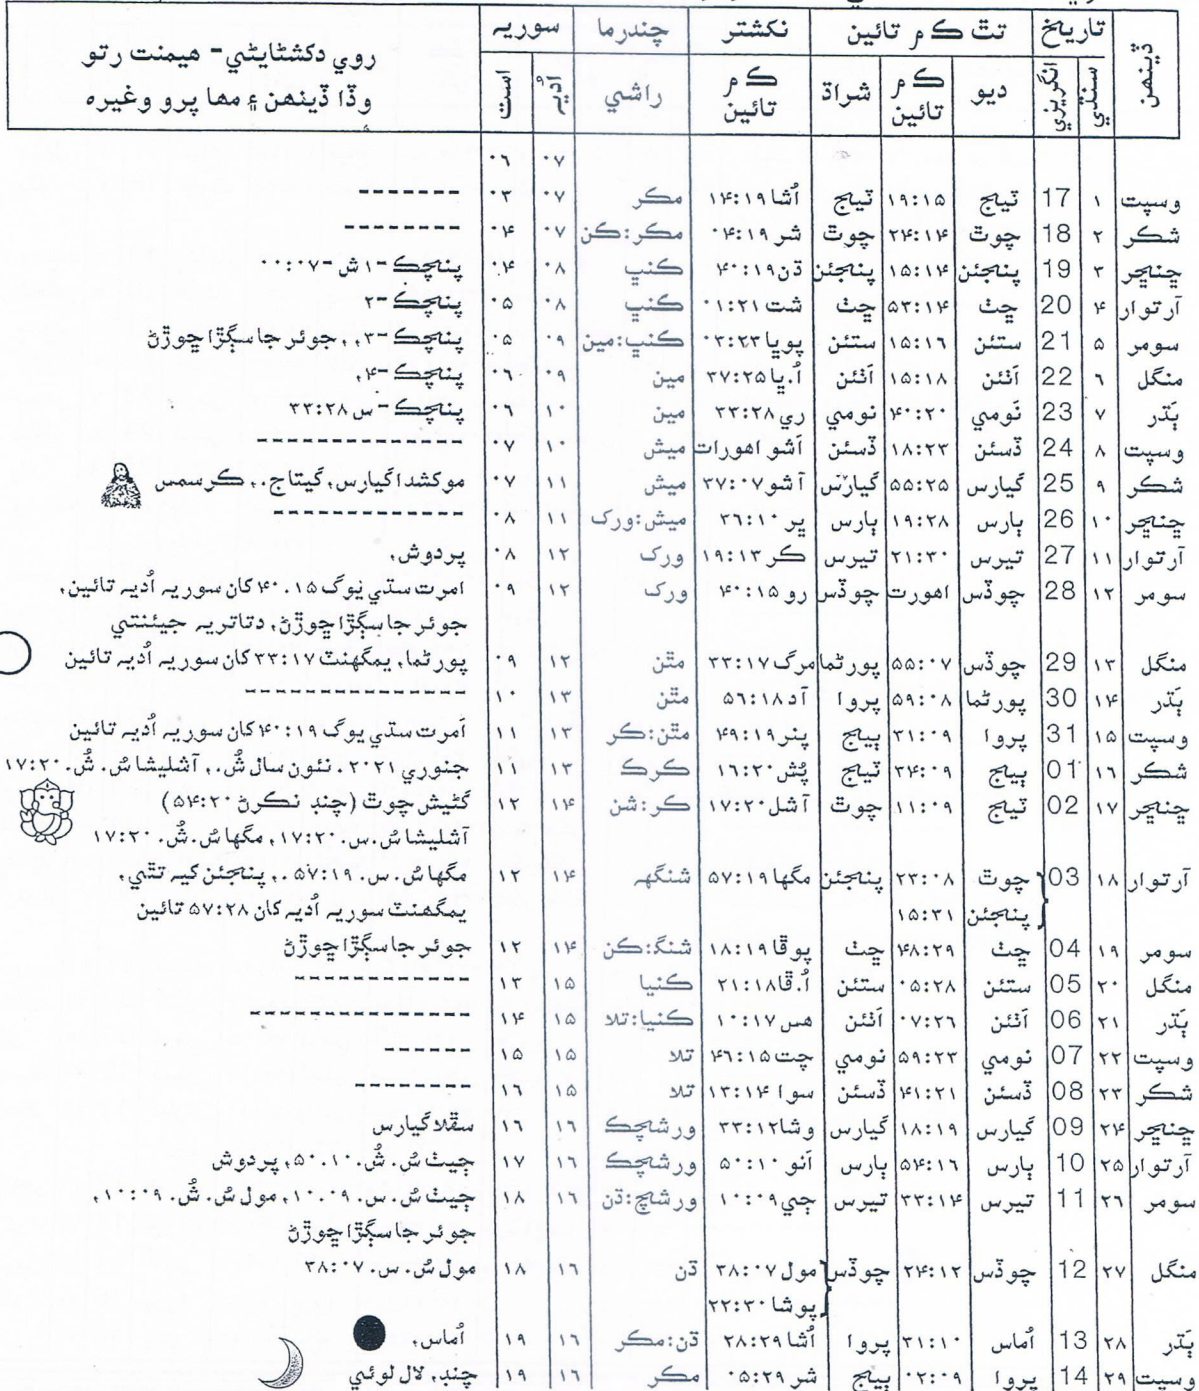 ڏينهن تاريخ سنڌي انگريزي تٿ ڪ م تائين ديو ڪ م تائين شراڌ نکشتر ڪ م تائين چندرما راشي سوريه اديه است
روي دکشڻايڻي - هيمنت رتو
وڏا ڏينهن ۽ مها پرو وغيره
۰۷ ۰۶
وسپت ۱ 17 ٽيج ۱۹:۱۵ ٽيج اُشا ۱۴:۱۹ مڪر ۰۷ ۰۳ --------
شڪر ۲ 18 چوٿ ۲۴:۱۴ چوٿ شر ۰۴:۱۹ مڪر:ڪن ۰۷ ۰۴ --------
ڇنڇر ۳ 19 پنجئن ۱۵:۱۴ پنجئن ڌن ۴۰:۱۹ ڪنڀ ۰۸ ۰۴ پنچڪ -۱ ش - ۰۰:۰۷
آرتوار ۴ 20 ڇٺ ۵۳:۱۴ ڇٺ شت ۰۱:۲۱ ڪنڀ ۰۸ ۰۵ پنچڪ -۲
سومر ۵ 21 ستئن ۱۵:۱۶ ستئن پوڀا ۰۳:۲۳ ڪنڀ:مين ۰۹ ۰۵ پنچڪ -۳,, جوئر جا سڳڙا ڇوڙڻ
منگل ۶ 22 اَٺئن ۱۵:۱۸ اَٺئن اُ.ڀا ۳۷:۲۵ مين ۰۹ ۰۶ پنچڪ -۴,
ٻڌر ۷ 23 نَومي ۴۰:۲۰ نومي ري ۳۳:۲۸ مين ۱۰ ۰۶ پنچڪ - س ۳۳:۲۸
وسپت ۸ 24 ڏسئن ۱۸:۲۳ ڏسئن اَشو اهورات ميش ۱۰ ۰۷ --------------
شڪر ۹ 25 گيارس ۵۵:۲۵ گيارس آشو ۳۷:۰۷ ميش ۱۱ ۰۷ موکشدا گيارس, گيتا ج., ڪرسمس
ڇنڇر ۱۰ 26 ٻارس ۱۹:۲۸ ٻارس ڀر ۳۶:۱۰ ميش:ورک ۱۱ ۰۸ -------------
آرتوار ۱۱ 27 تيرس ۲۱:۳۰ تيرس ڪر ۱۹:۱۳ ورک ۱۲ ۰۸ پردوش,
سومر ۱۲ 28 چوڏس اهورت چوڏس رو ۴۰:۱۵ ورک ۱۲ ۰۹ امرت سڌي يوگ ۴۰.۱۵ کان سوريه اُديه تائين,
جوئر جا سڳڙا ڇوڙڻ, دتاتريه جيئنتي
منگل ۱۳ 29 چوڏس ۵۵:۰۷ پورڻما مرگ ۳۳:۱۷ مٿن ۱۲ ۰۹ پورڻما, يمگهنٽ ۳۳:۱۷ کان سوريه اُديه تائين
ٻڌر ۱۴ 30 پورڻما ۵۹:۰۸ پروا آد ۵۶:۱۸ مٿن ۱۳ ۱۰ ---------------
وسپت ۱۵ 31 پروا ۳۱:۰۹ ٻيج پنر ۴۹:۱۹ مٿن:ڪر ۱۳ ۱۱ اَمرت سڌي يوگ ۴۰:۱۹ کان سوريه اُديه تائين
شڪر ۱۶ 01 ٻيج ۳۴:۰۹ ٽيج پُش ۱۶:۲۰ ڪرڪ ۱۳ ۱۱ جنوري ۲۰۲۱. نئون سال شُ., آشليشا سُ. شُ. ۱۷:۲۰
ڇنڇر ۱۷ 02 ٽيج ۱۱:۰۹ چوٿ آشل ۱۷:۲۰ ڪر:شن ۱۴ ۱۲ گڻيش چوٿ (چنڊ نڪرڻ ۵۴:۲۰)
آشليشا سُ.س. ۱۷:۲۰, مگها سُ.شُ. ۱۷:۲۰
آرتوار ۱۸ 03 چوٿ ۲۳:۰۸ پنجئن مگها ۵۷:۱۹ شنگهہ ۱۴ ۱۲ مگها سُ. س. ۵۷:۱۹ ., پنجئن کيه تٿي,
پنجئن ۱۵:۳۱ يمگهنٽ سوريه اُديه کان ۵۷:۲۸ تائين
سومر ۱۹ 04 ڇٺ ۴۸:۲۹ ڇٺ پوڦا ۱۸:۱۹ شنگ:ڪن ۱۴ ۱۲ جوئر جا سڳڙا ڇوڙڻ
منگل ۲۰ 05 ستئن ۰۵:۲۸ ستئن اُ.ڦا ۲۱:۱۸ ڪنيا ۱۵ ۱۳ -----------
ٻڌر ۲۱ 06 اَٺئن ۰۷:۲۶ اَٺئن هس ۱۰:۱۷ ڪنيا:تلا ۱۵ ۱۴ ---------------
وسپت ۲۲ 07 نومي ۵۹:۲۳ نومي چت ۴۶:۱۵ تلا ۱۵ ۱۵ ------
شڪر ۲۳ 08 ڏسئن ۴۱:۲۱ ڏسئن سوا ۱۳:۱۴ تلا ۱۵ ۱۶ --------
ڇنڇر ۲۴ 09 گيارس ۱۸:۱۹ گيارس وشا ۳۳:۱۲ ورشچڪ ۱۶ ۱۶ سڦلا گيارس
آرتوار ۲۵ 10 ٻارس ۵۴:۱۶ ٻارس اَنو ۵۰:۱۰ ورشچڪ ۱۶ ۱۷ جيٺ سُ. شُ. ۵۰.۱۰, پردوش
سومر ۲۶ 11 تيرس ۳۳:۱۴ تيرس جي ۱۰:۰۹ ورشچ:ڌن ۱۶ ۱۸ جيٺ سُ. س. ۱۰.۰۹, مول سُ. شُ. ۱۰:۰۹,
جوئر جا سڳڙا ڇوڙڻ
منگل ۲۷ 12 چوڏس ۲۴:۱۲ چوڏس مول ۳۸:۰۷ ڌن ۱۶ ۱۸ مول سُ. س. ۳۸:۰۷
پوشا ۲۲:۳۰
ٻڌر ۲۸ 13 اُماس ۳۱:۱۰ پروا اُشا ۲۸:۲۹ ڌن:مڪر ۱۶ ۱۹ اُماس,
وسپت ۲۹ 14 پروا ۰۲:۰۹ ٻيج شر ۰۵:۲۹ مڪر ۱۶ ۱۹ چنڊ, لال لوئي